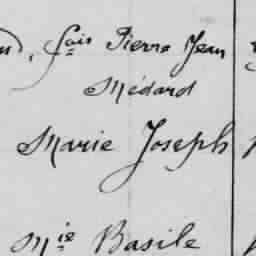 fçois Pierre Jean
Médard
Marie Joseph
Mie Basile